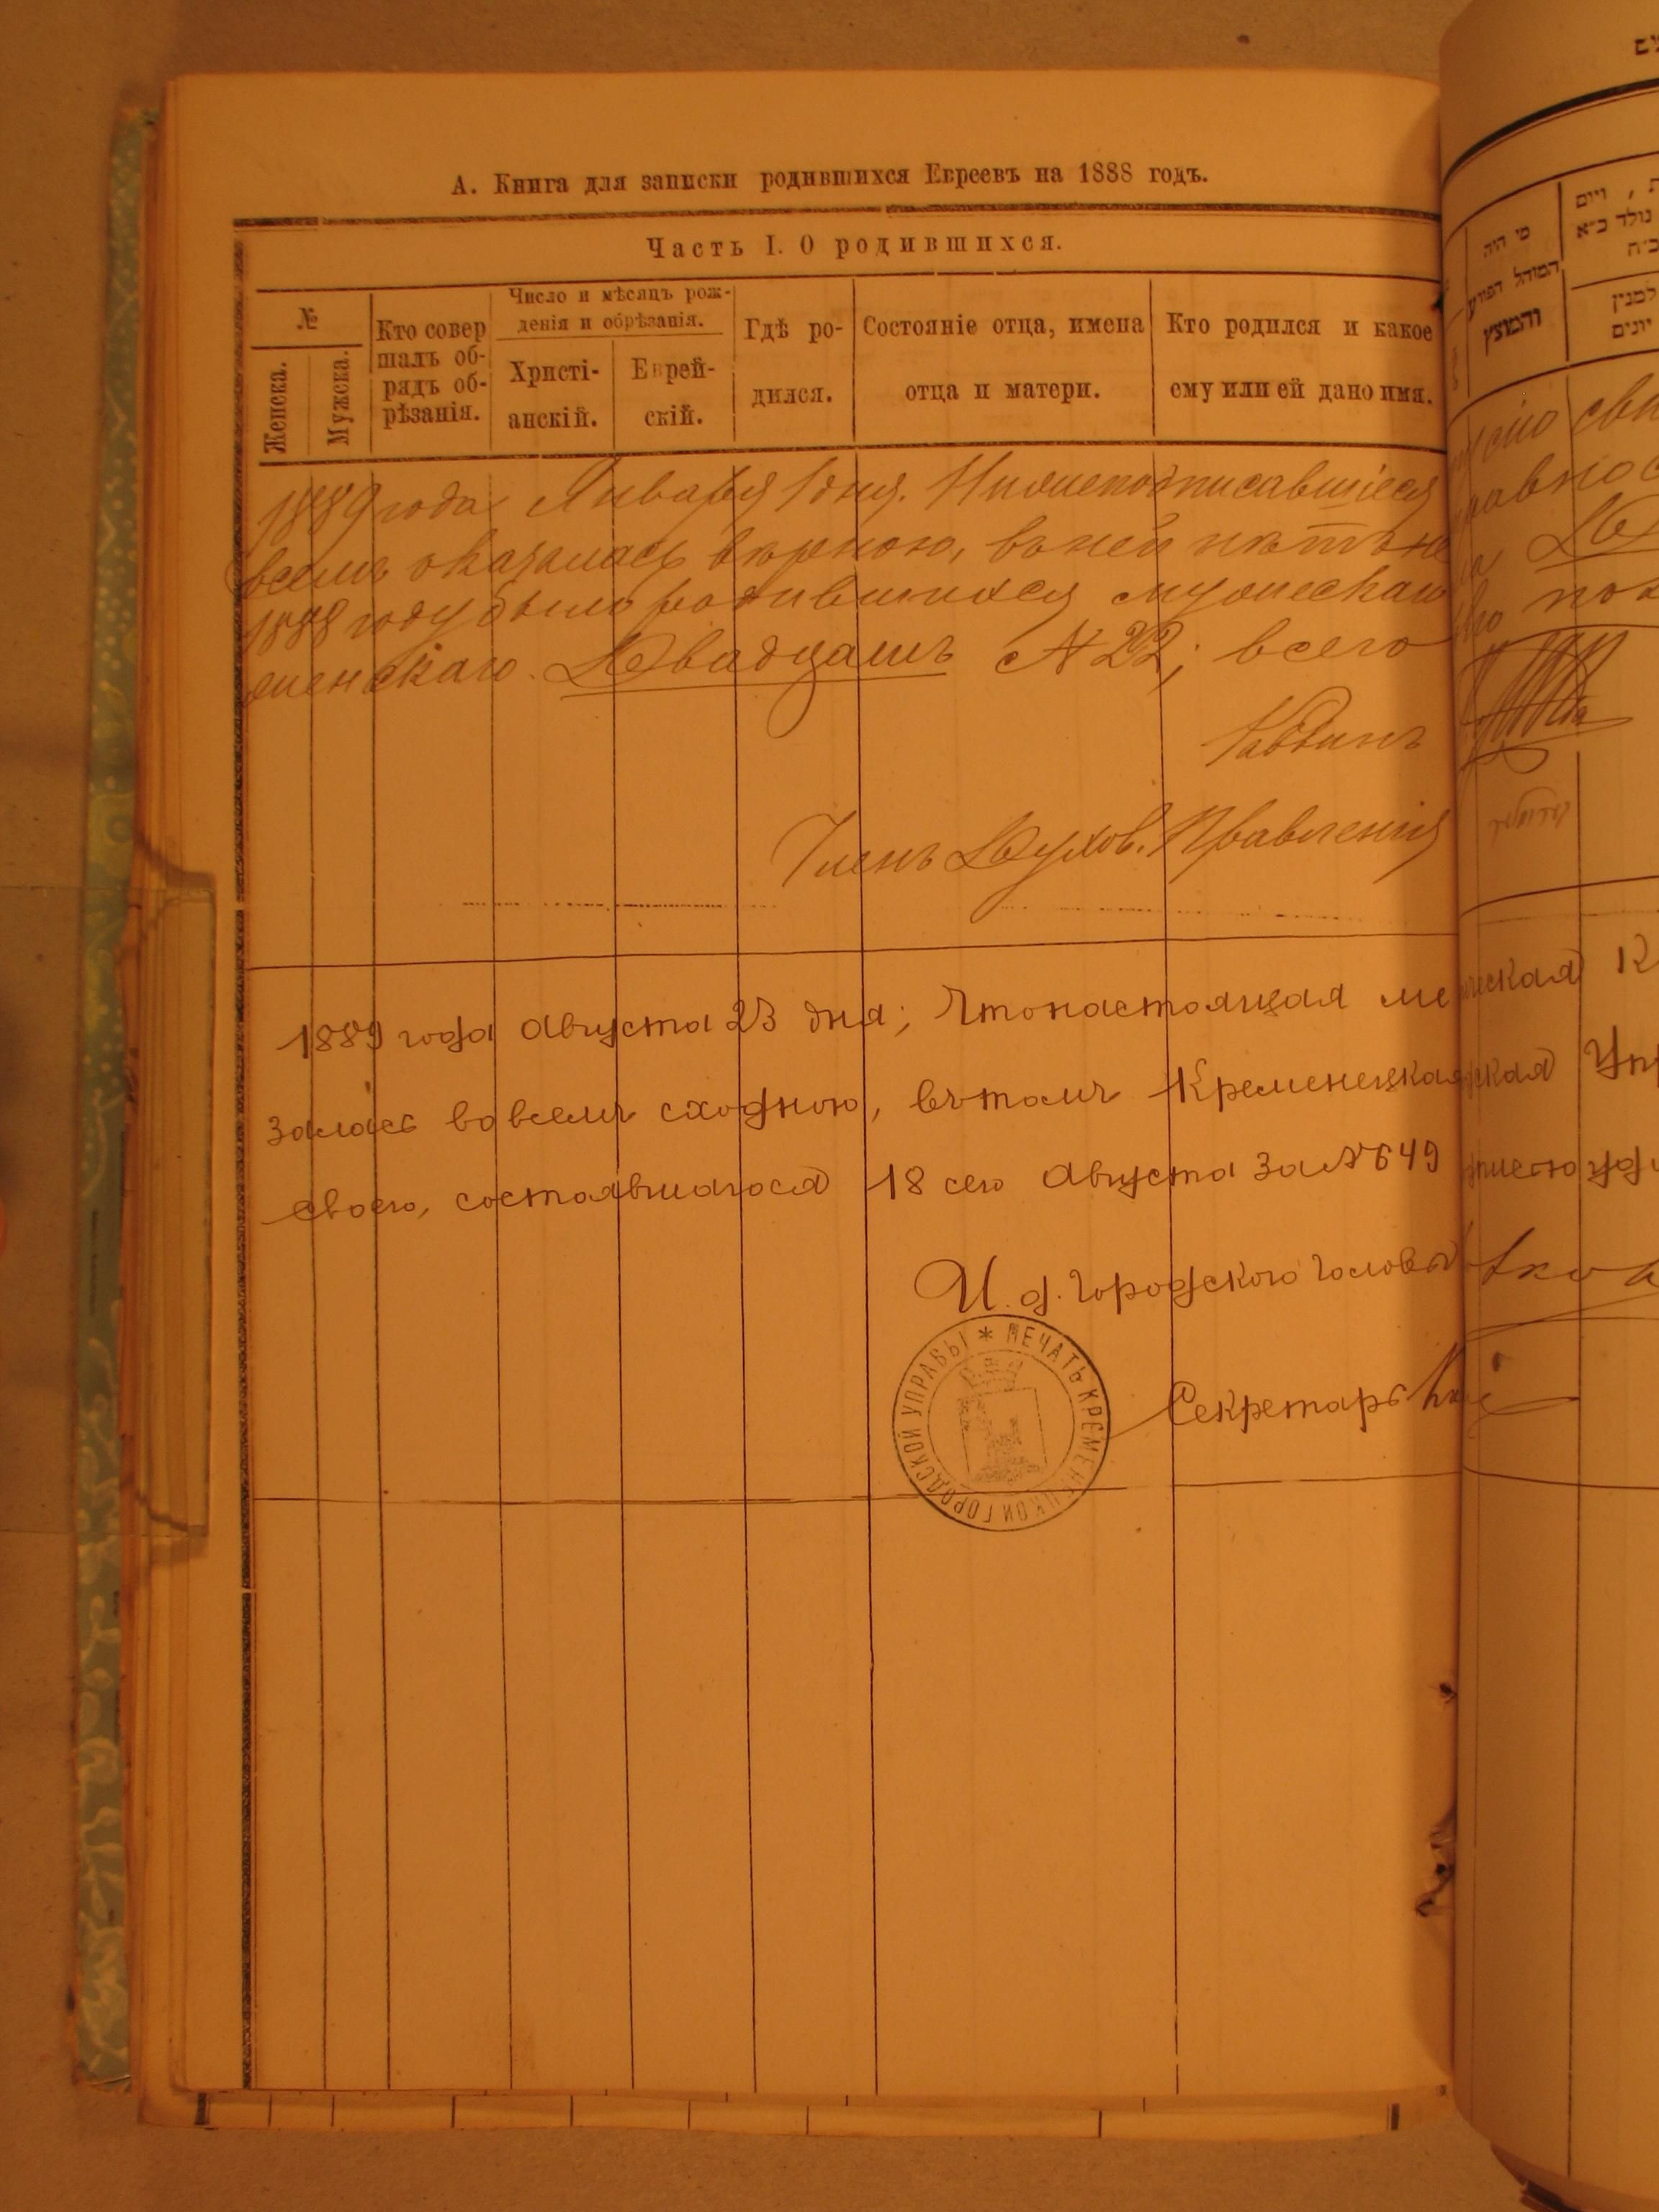 А. Книга для записки родившихся Евреевъ на 1888 годъ.
Часть I. О родившихся.
№
Женска.
Мужска.
Кто совер
шалъ об-
рядъ об-
рѣзанія.
Число и мѣсяцъ рож-
денія и обрѣзанія.
Христі-
анскій.
Еврей-
скій.
Гдѣ ро-
дился.
Состояніе отца, имена
отца и матери.
Кто родился и какое
ему или ей дано имя.
1889 года Января 1 дня. Нижеподписавшіеся
всемъ оказалась вѣрною, въ ней нѣтъ не
1888 году было родившихся мужескаго
женскаго. Двадцать № 22; всего
Раввинъ
Членъ Духов. Правленія
1889 года Августа 23 дня; Что настоящая ме
залась во всемъ сходною, въ томъ Кременецкая
своего, состоявшагося 18 сего Августа за № 649
И. д. Городского Головы
Секретарь
ПЕЧАТЬ КРЕМЕНЕЦКОЙ ГОРОДСКОЙ УПРАВЫ
מי היה
המוהל הפורע
והמוצץ
ויום
נולד
למנין
יונים